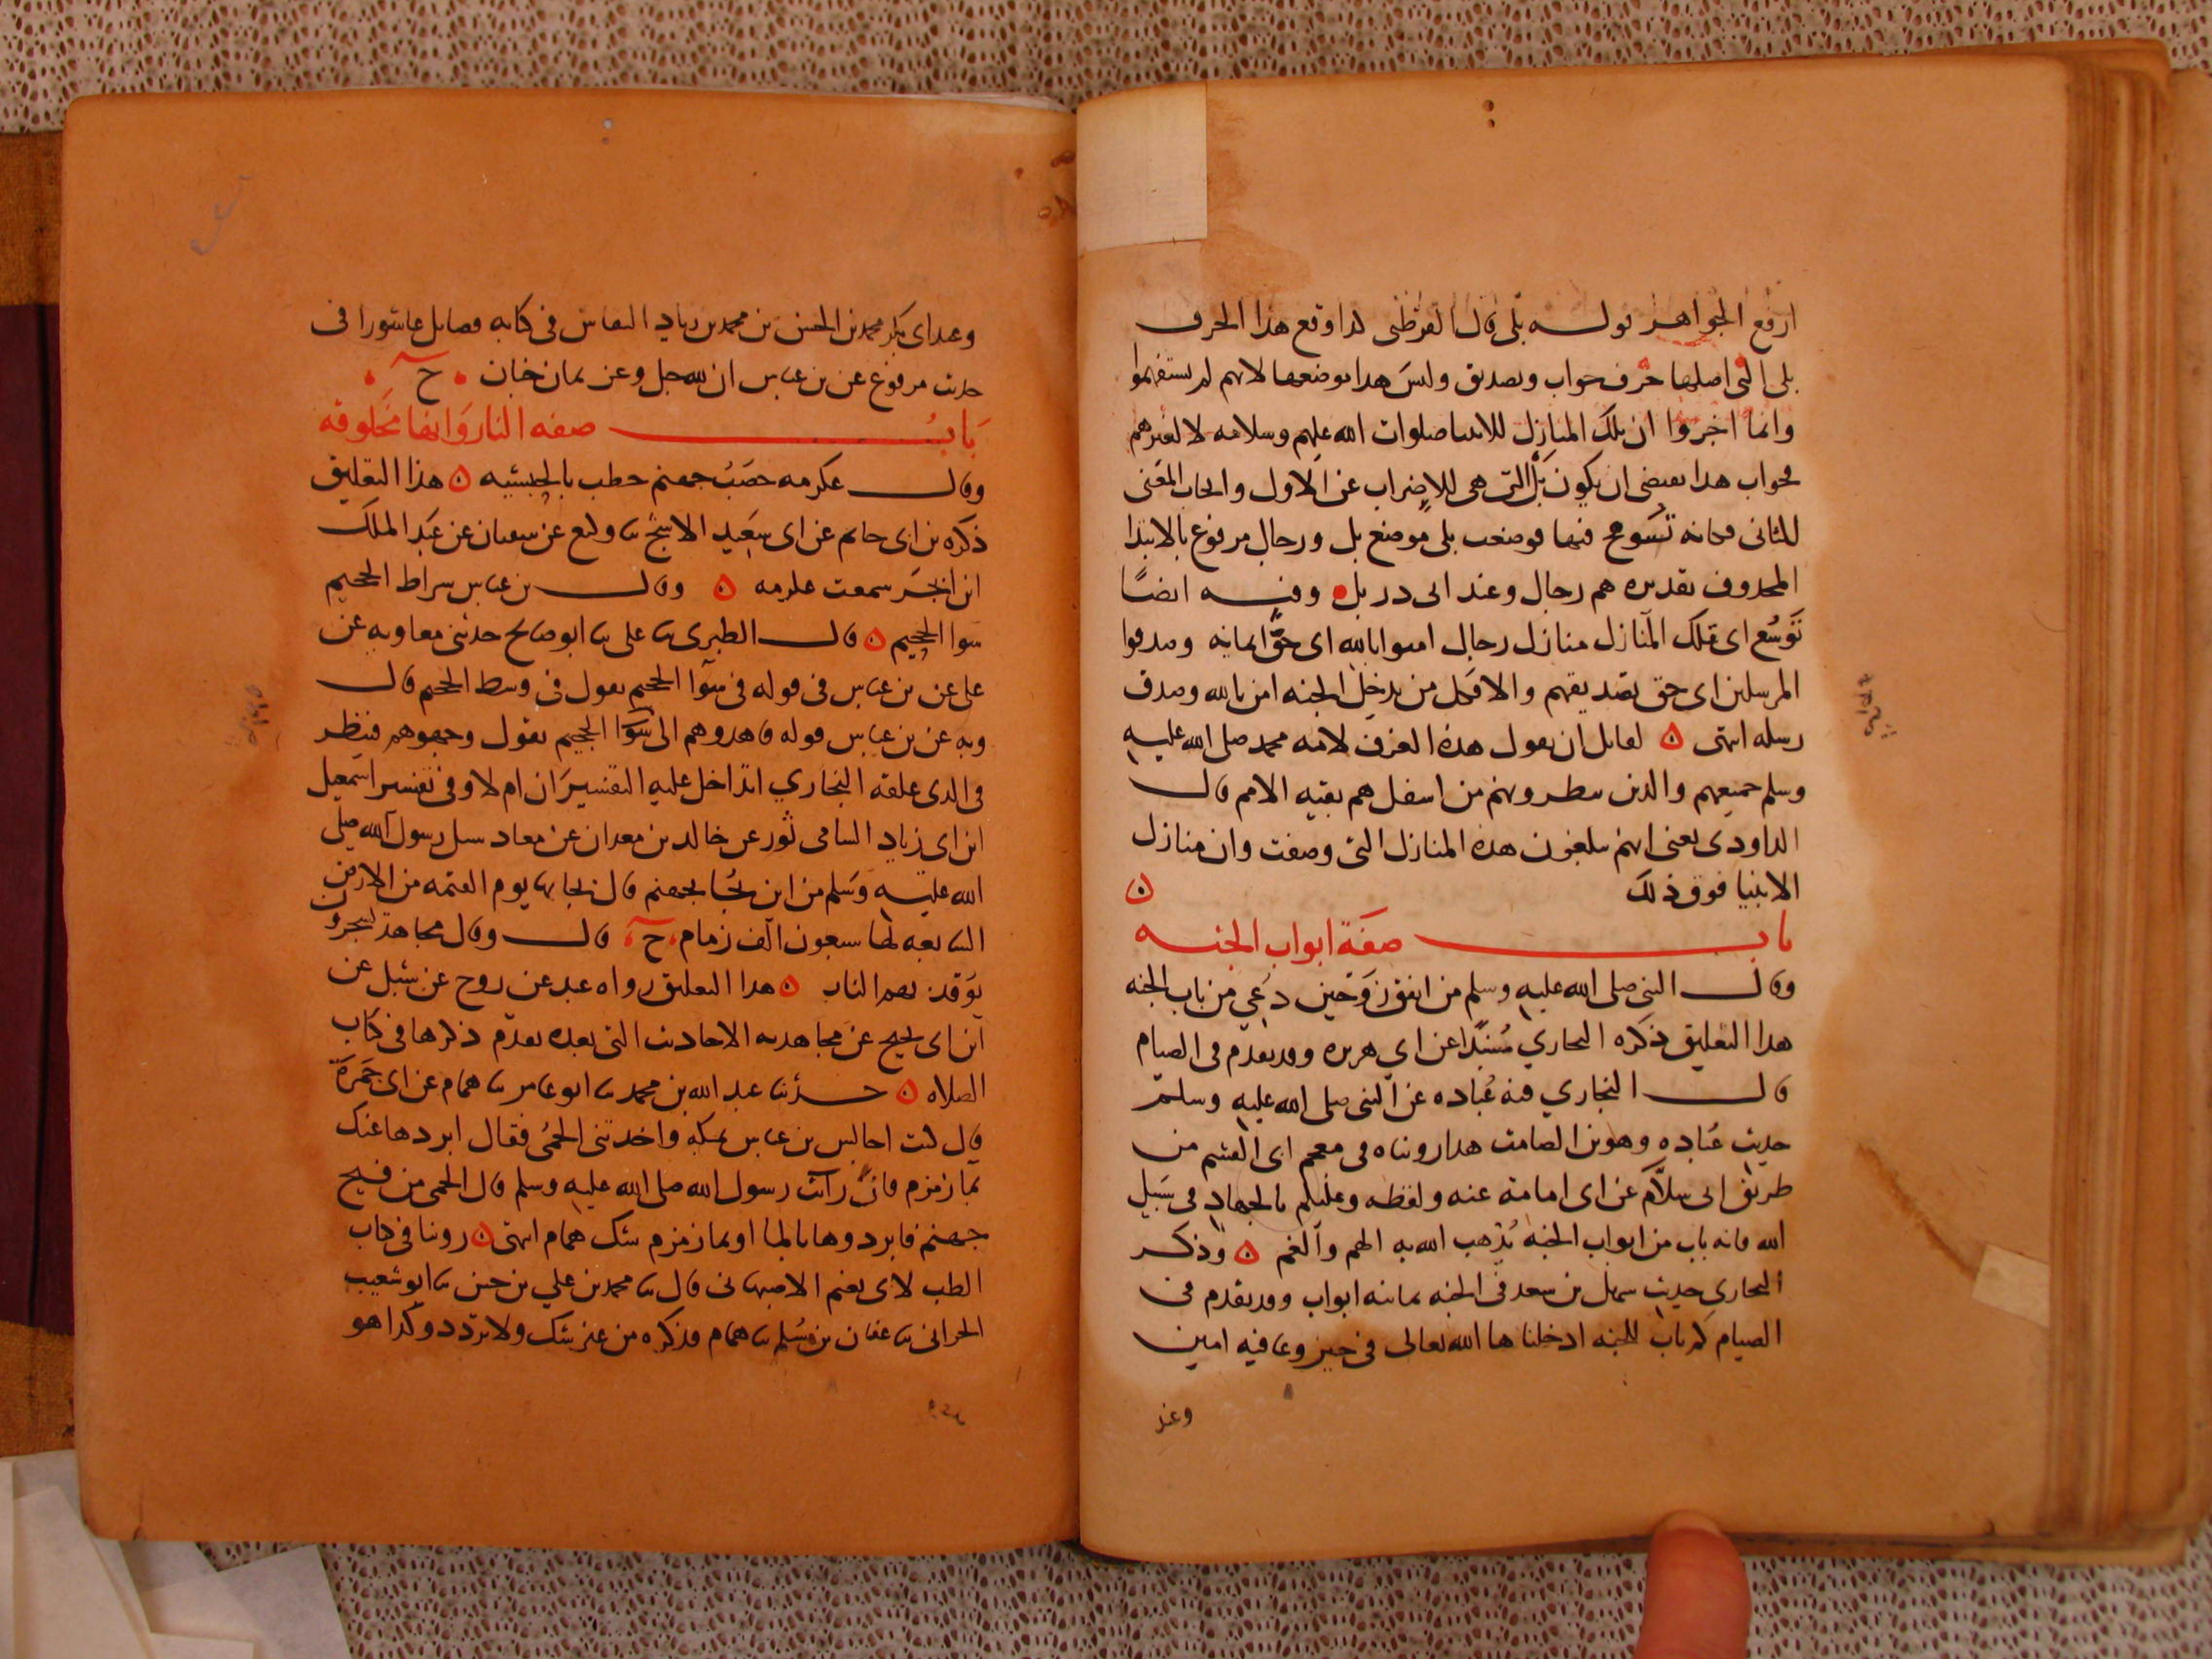 ارفع الجواهر قوله بلى قال القرطبي كذا وقع هذا الحرف
بلى التي اصلها حرف جواب وتصديق وليس هذا موضعها لانهم لم يستفهموا
وانما اخبروا ان تلك المنازل للانبيا صلوات الله عليهم وسلامه لا لغيرهم
فجواب هذا يقتضي ان يكون بل التي هي للاضراب عن الاول وايجاب المعنى
للثاني فكانه تسومح فيها فوضعت بلى موضع بل ورجال مرفوع بالابتدا
المحذوف تقديره هم رجال وعند ابي ذر بل وفيه ايضًا
توسع اي تلك المنازل منازل رجال امنوا بالله اي حق ايمانه وصدقوا
المرسلين اي حق تصديقهم والا فكل من يدخل الجنه امن بالله وصدق
رسله انتهى لقائل ان يقول هذه الغرف لامه محمد صلى الله عليه
وسلم جميعهم والذين ينظرونهم من اسفل هم بقيه الامم قال
الداودي يعني انهم يبلغون هذه المنازل التي وصفت وان منازل
الانبيا فوق ذلك
باب صفة ابواب الجنه
وقال النبي صلى الله عليه وسلم من انفق زوجين دعي من باب الجنه
هذا التعليق ذكره البخاري مسندا عن ابي هريره وقد تقدم في الصيام
قال البخاري فيه عباده عن النبي صلى الله عليه وسلم
حديث عباده وهو بن الصامت هذا رويناه في معجم ابي القسم من
طريق ابي سلام عن ابي امامة عنه ولفظه وعليكم بالجهاد في سبيل
الله فانه باب من ابواب الجنه يذهب الله به الهم والغم وذكر
البخاري حديث سهل بن سعد في الجنه ثمانيه ابواب وقد تقدم في
الصيام كم باب للجنه ادخلناها الله تعالى في خير وعافيه امين
وعند
وعند ابي بكر محمد بن الحسن بن محمد بن زياد النقاش في كتابه فضايل عاشورا في
حديث مرفوع عن بن عباس ان لله جل وعز ثمان خبان ح
باب صفه النار وانها مخلوقه
وقال عكرمه حصب جهنم حطب بالحبشيه هذا التعليق
ذكره بن ابي حاتم عن ابي سعيد الاشج ثنا وكيع عن سفيان عن عبد الملك
ابن ابجر سمعت عكرمه وقال بن عباس سراط الجحيم
سوا الجحيم قال الطبري ثنا علي ثنا ابو صالح حدثني معاويه عن
علي عن بن عباس في قوله في سوآ الجحيم يقول في وسط الجحيم قال
وبه عن بن عباس قوله فاهدوهم الى سوا الجحيم يقول وجهوهم فينظر
في الذي علقه البخاري اتداخل عليه التفسيران ام لا وفي تفسير اسمعيل
ابن ابي زياد الشامي ثور عن خالد بن معدان عن معاذ سئل رسول الله صلى
الله عليه وسلم من اين يجا بجهنم قال يجا بها يوم القيمه من الارض
السابعه لها سبعون الف زمام ح قال وقال مجاهد يسجرون
يوقد بهم النار هذا التعليق رواه عبد عن روح عن شبل عن
ابن ابي نجيح عن مجاهد به الاحاديث التي بعده تقدم ذكرها في كتاب
الصلاه حدثنا عبد الله بن محمد ثنا ابو عامر ثنا همام عن ابي جمرة
قال كنت اجالس بن عباس بمكه واخذتني الحمى فقال ابردها عنك
بما زمزم فان رسول الله صلى الله عليه وسلم قال الحمى من فيح
جهنم فابردوها بالما او بما زمزم شك همام انتهى روينا في كتاب
الطب لابي نعيم الاصبهاني قال ثنا محمد بن علي بن حبيش ثنا ابو شعيب
الحراني ثنا عفان بن مسلم ثنا همام فذكره من غير شك ولا تردد وكذا هو